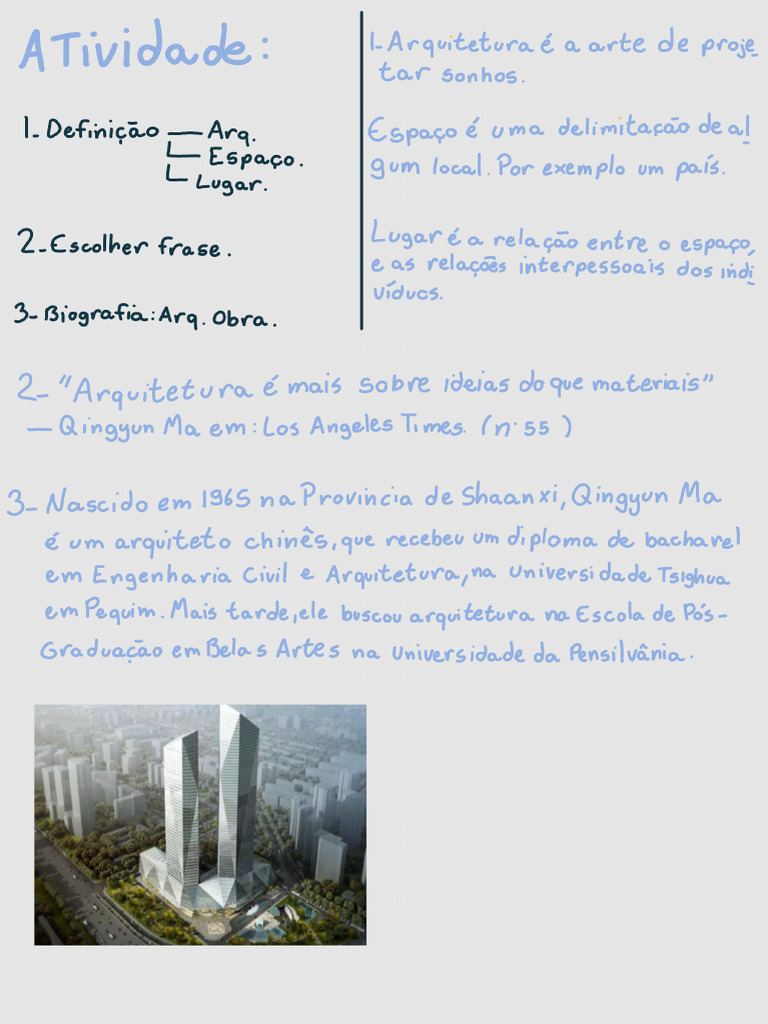 Atividade:
1- Definição — Arq.
Espaço.
Lugar.
2- Escolher frase.
3- Biografia: Arq. Obra.
1- Arquitetura é a arte de proje
tar sonhos.
Espaço é uma delimitação de al
gum local. Por exemplo um país.
Lugar é a relação entre o espaço,
e as relações interpessoais dos indi
víduos.
2- "Arquitetura é mais sobre ideias do que materiais"
— Qingyun Ma em: Los Angeles Times. (n° 55 )
3- Nascido em 1965 na Província de Shaanxi, Qingyun Ma
é um arquiteto chinês, que recebeu um diploma de bacharel
em Engenharia Civil e Arquitetura, na Universidade Tsighua
em Pequim. Mais tarde, ele buscou arquitetura na Escola de Pós-
Graduação em Belas Artes na Universidade da Pensilvânia.